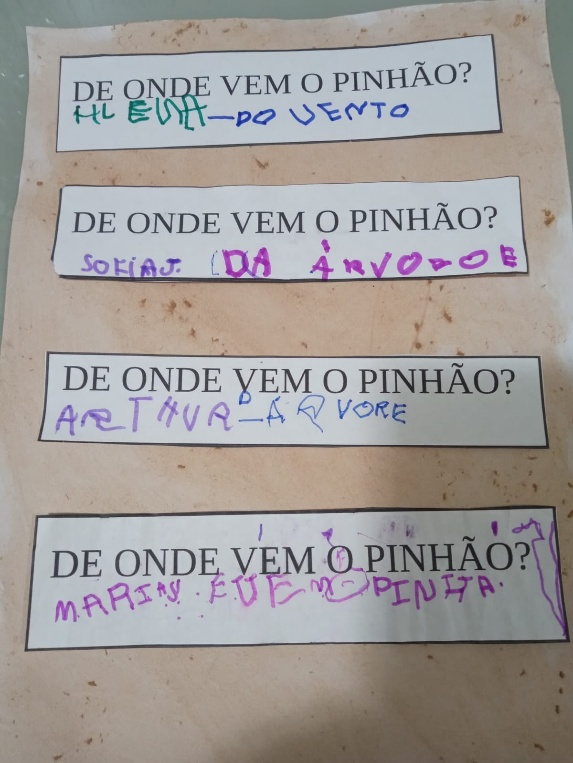 DE ONDE VEM O PINHÃO?
HLENA—DO VENTO
DE ONDE VEM O PINHÃO?
SOFIA J. (DA ÁRVOROE
DE ONDE VEM O PINHÃO?
ARTHUR D—A RVORE
DE ONDE VEM O PINHÃO?
MARIA PINHA.